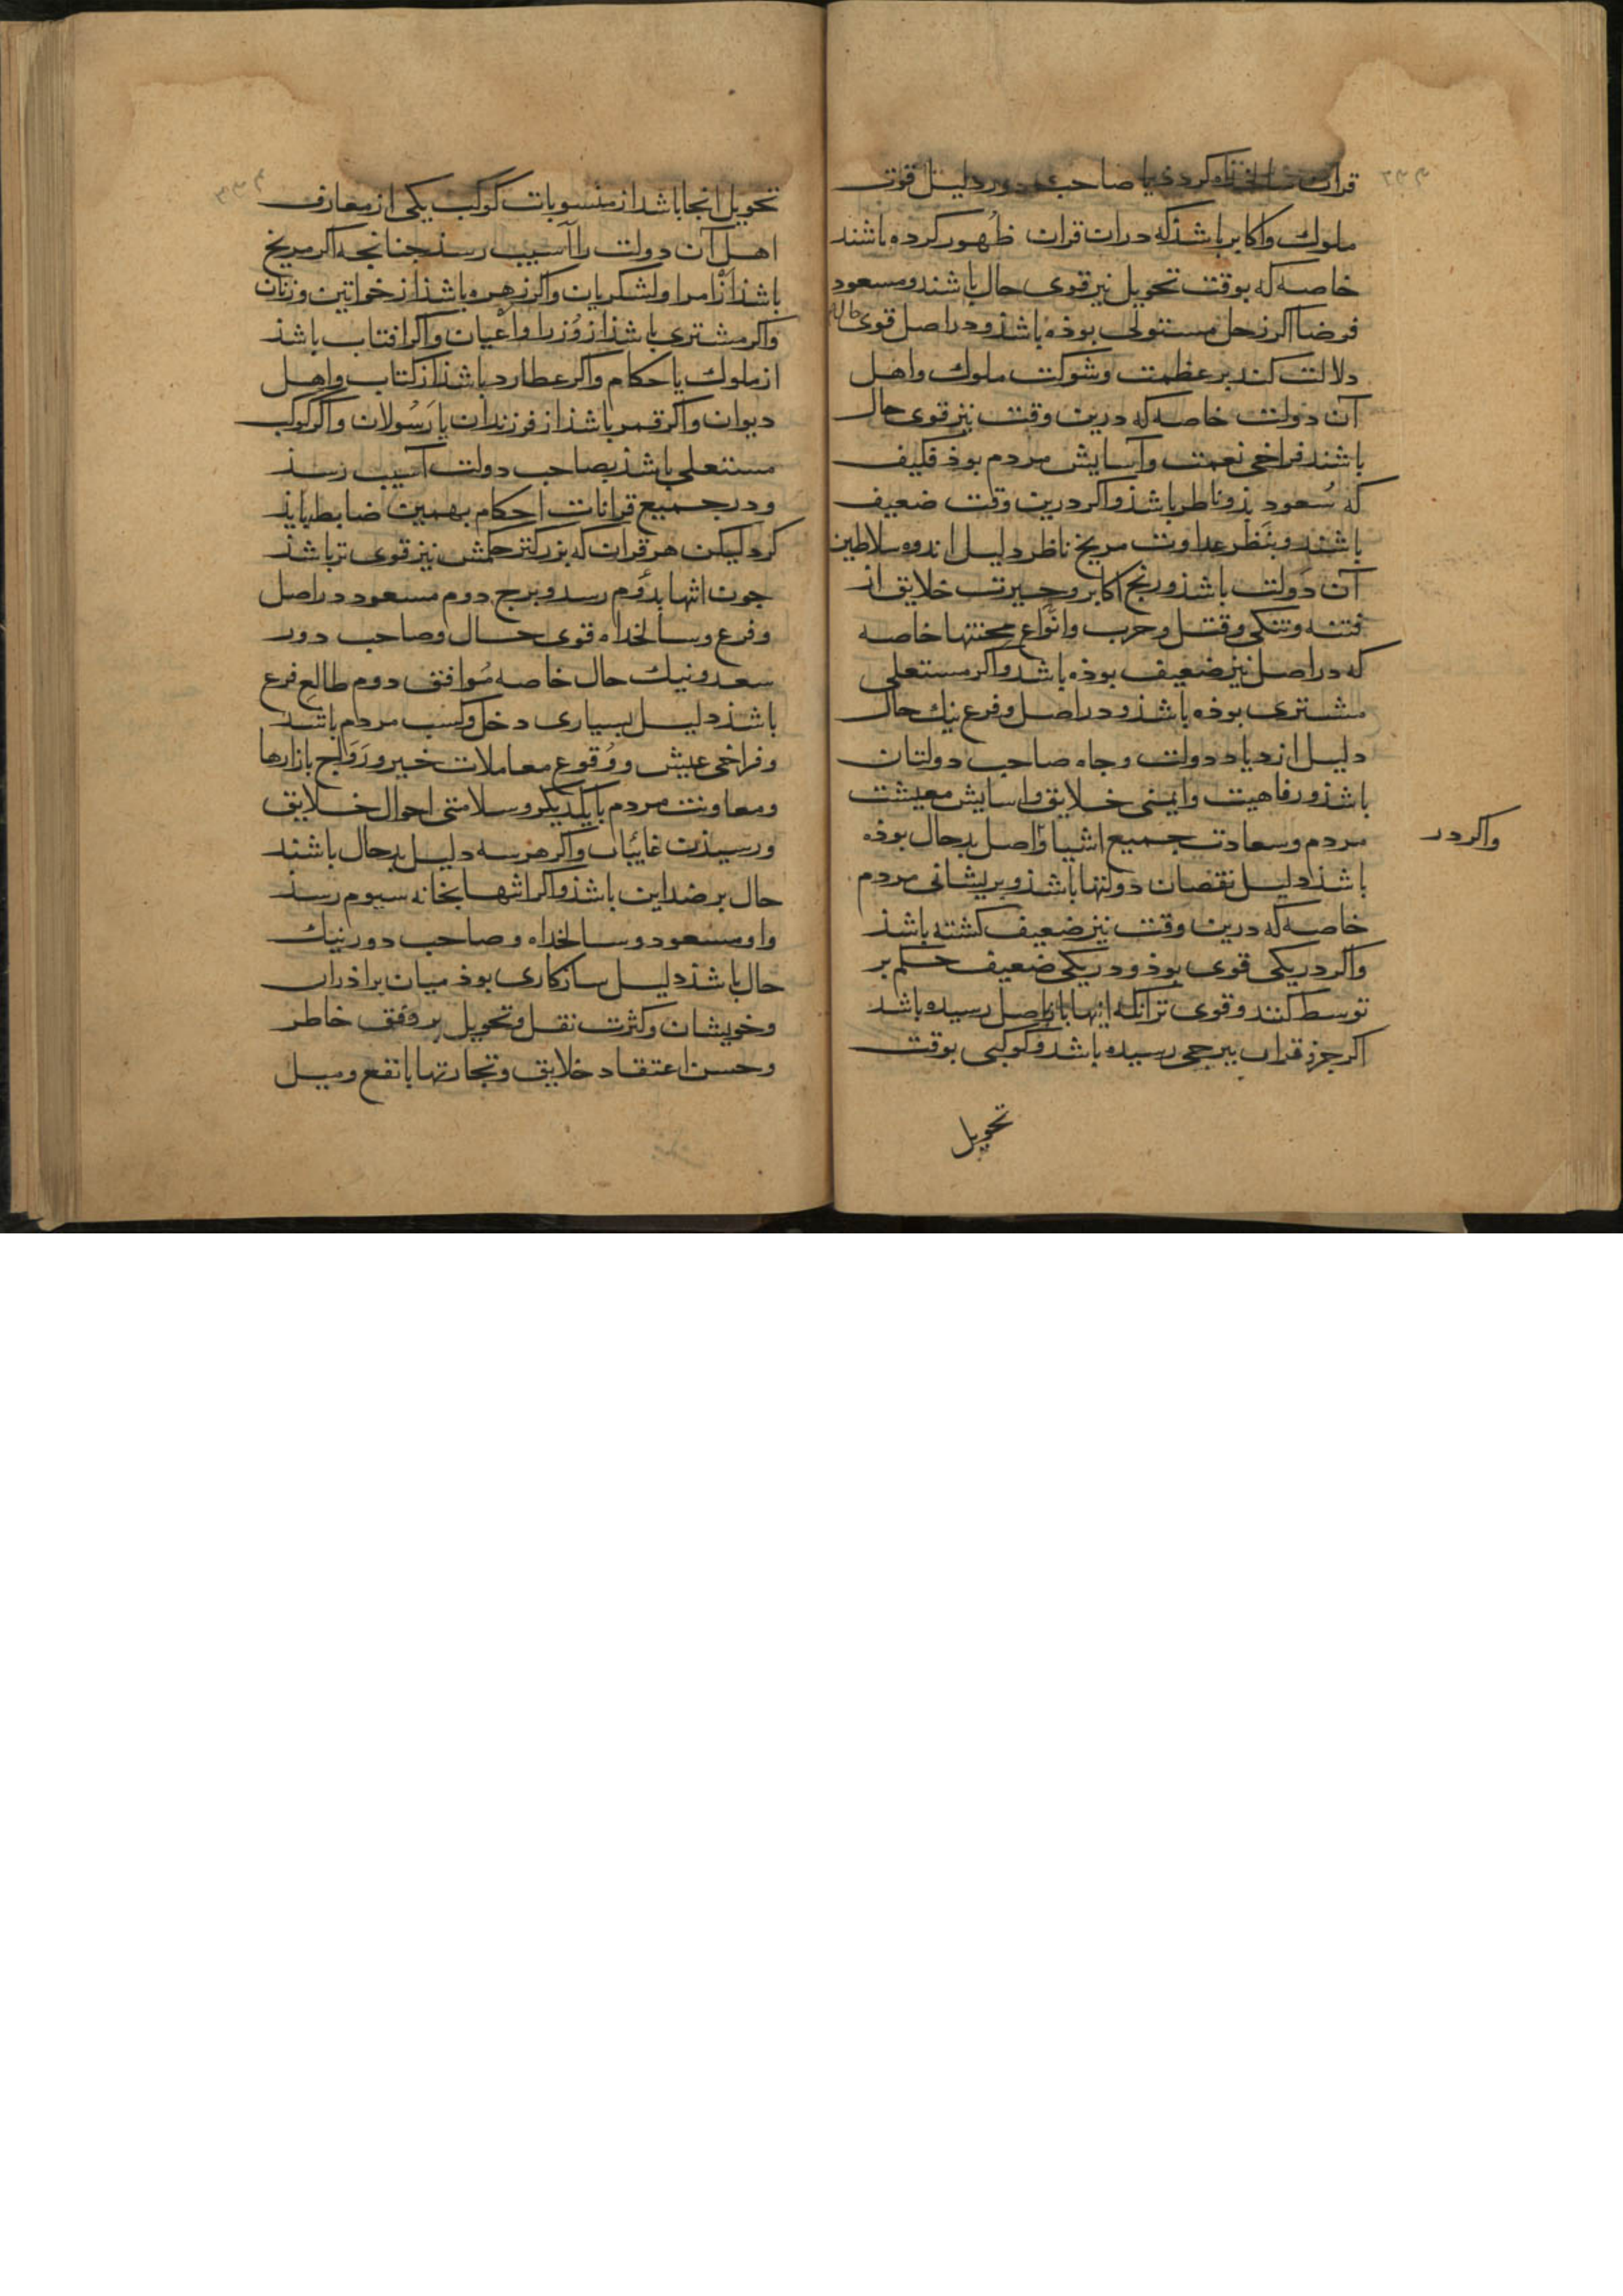 قران سالخداه کردذ یا صاحب دور دلیل قوت
ملوك واکابر باشذ که دران قران ظهور کرده باشند
خاصه که بوقت تحویل نیز قوی حال باشند ومسعود
فرضا اکر زحل مستولی بوذه باشذ ودر اصل قوی حال
دلالت کند بر عظمت وشوکت ملوك واهل
آن دولت خاصه که درین وقت نیز قوی حال
باشند فراخی نعمت وآسایش مردم بوذ فکیف
که سُعود بذو ناظر باشذ واکر درین وقت ضعیف
باشند وبنَظر عداوت مریخ ناظر دلیل اندوه سلاطین
آن دَولت باشذ ورنج اکابر وحیرت خلایق از
فتنه وتنکی وقتل وحرب وانواع محنتها خاصه
که در اصل نیز ضعیف بوذه باشد واکر مستعلی
مشتری بوذه باشذ ودر اصل وفرع نیك حال
دلیل ازدیاد دولت وجاه صاحب دولتان
باشذ ورفاهیت وایمنی خلایق واسایش معیشت
مردم وسعادت جمیع اشیا واصل بدحال بوذه
واکر در
باشذ دلیل نقصان دولتها باشذ وبریشانی مردم
خاصه که درین وقت نیز ضعیف کشته باشذ
واکر در یکی قوی بوذ ودر یکی ضعیف حکم بر
توسط کنند وقوی تر انکه انتها باز باصل رسیده باشد
اکر جزو قران ببرجی رسیده باشد وکوکبی بوقت
تحویل
تحویل انجا باشد از منسوبات کوکب یکی از معارف
اهل آن دولت را آسیب رسذ جنانجه اکر مریخ
باشذ از امرا ولشکریان واکر زهره باشذ از خواتین وزنان
واکر مشتری باشذ از وُزرا واعیان واکر افتاب باشذ
از ملوك یا حکام واکر عطارد باشذ از کتاب واهل
دیوان واکر قمر باشذ از فرزندان یا رَسُولان واکر کوکب
مستعلی باشذ بصاحب دولت آسیب رسذ
ودر جمیع قرانات احکام بهمین ضابط بایذ
کرد لیکن هر قران که بزرکتر حکمش نیز قوی تر باشذ
جون انتها بدوُم رسد وبرج دوم مسعود در اصل
وفرع وسالخداه قوی حال وصاحب دور
سعد ونیك حال خاصه مُوافق دوم طالع فرع
باشذ دلیل بسیاری دخل وکسب مردم باشذ
وفراخی عیش ووُقوع معاملات خیر ورَوَاج بازارها
ومعاونت مردم با یکدیکر وسلامتی احوال خلایق
ورسیذن غائبان واکر هر سه دلیل بدحال باشند
حال بر ضد این باشذ واکر انتها بخانه سیوم رسذ
واو مسعود وسالخداه وصاحب دور نیك
حال باشذ دلیل سازکاری بوذ میان براذران
وخویشان وکثرت نقل وتحویل بر وفق خاطر
وحسن اعتقاد خلایق وتجارتها با نفع ومیل